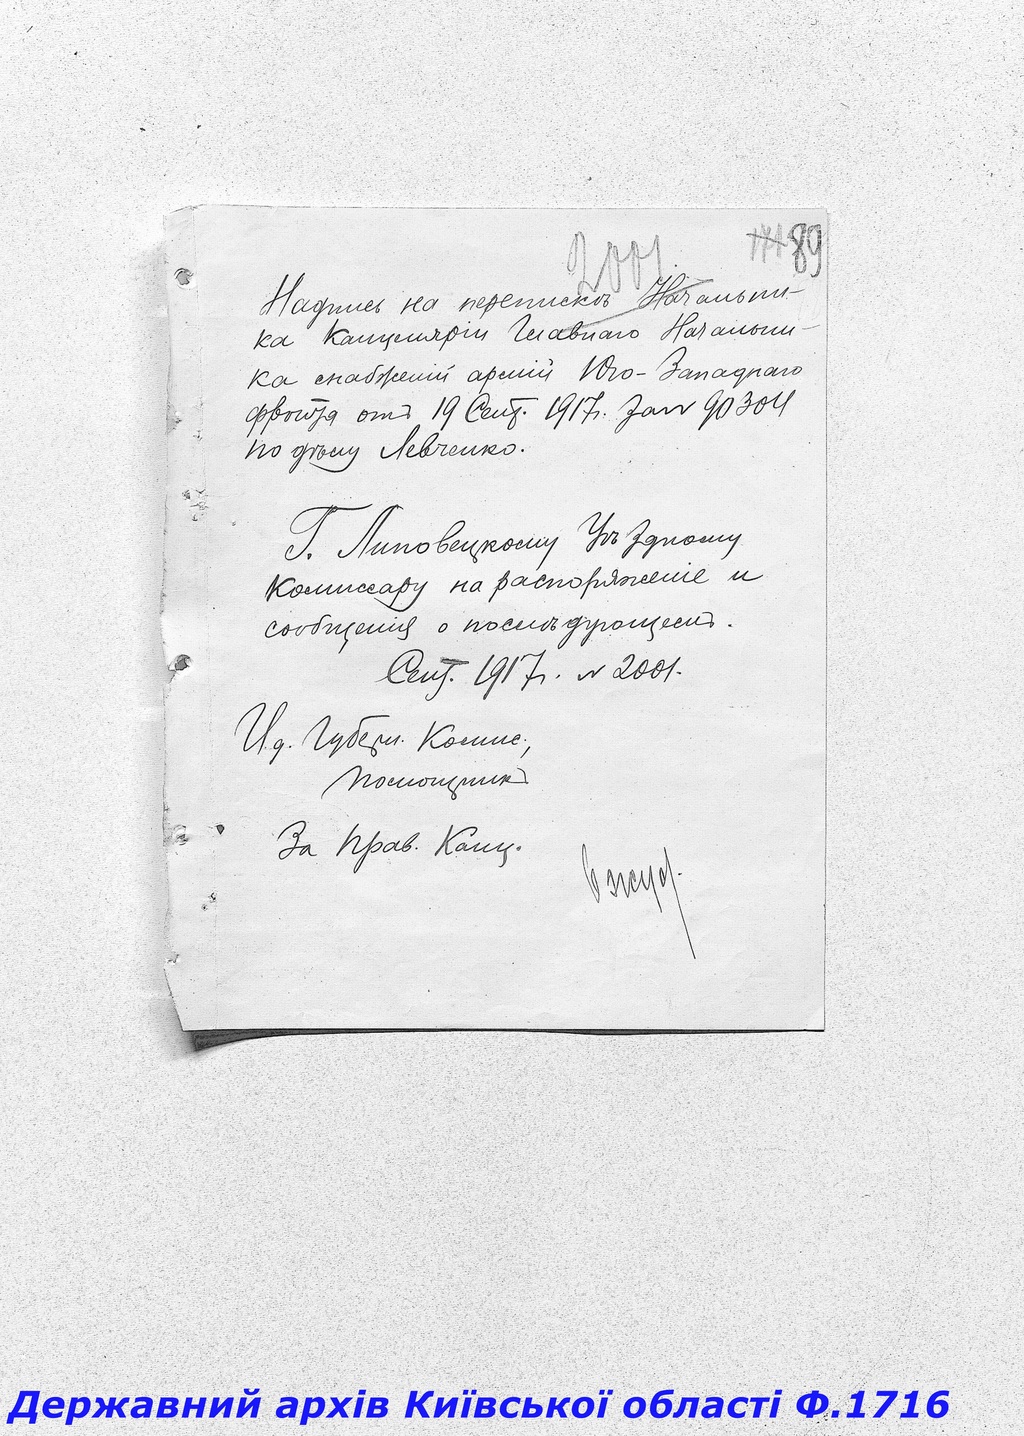 2001.
171 89
Надпись на перепискѣ Начальни-
ка Канцеляріи Главнаго Начальни-
ка снабженій армій Юго-Западнаго
фронта отъ 19 Сент. 1917 г. за № 90304
по дѣлу Левченко.
Г. Липовецкому Уѣздному
Комиссару на распоряженіе и
сообщенія о послѣдующемъ.
Сент. 1917 г. № 2001.
И.д. Губерн. Комис.,
Помощникъ
За Прав. Канц.
Державний архів Київської області Ф.1716